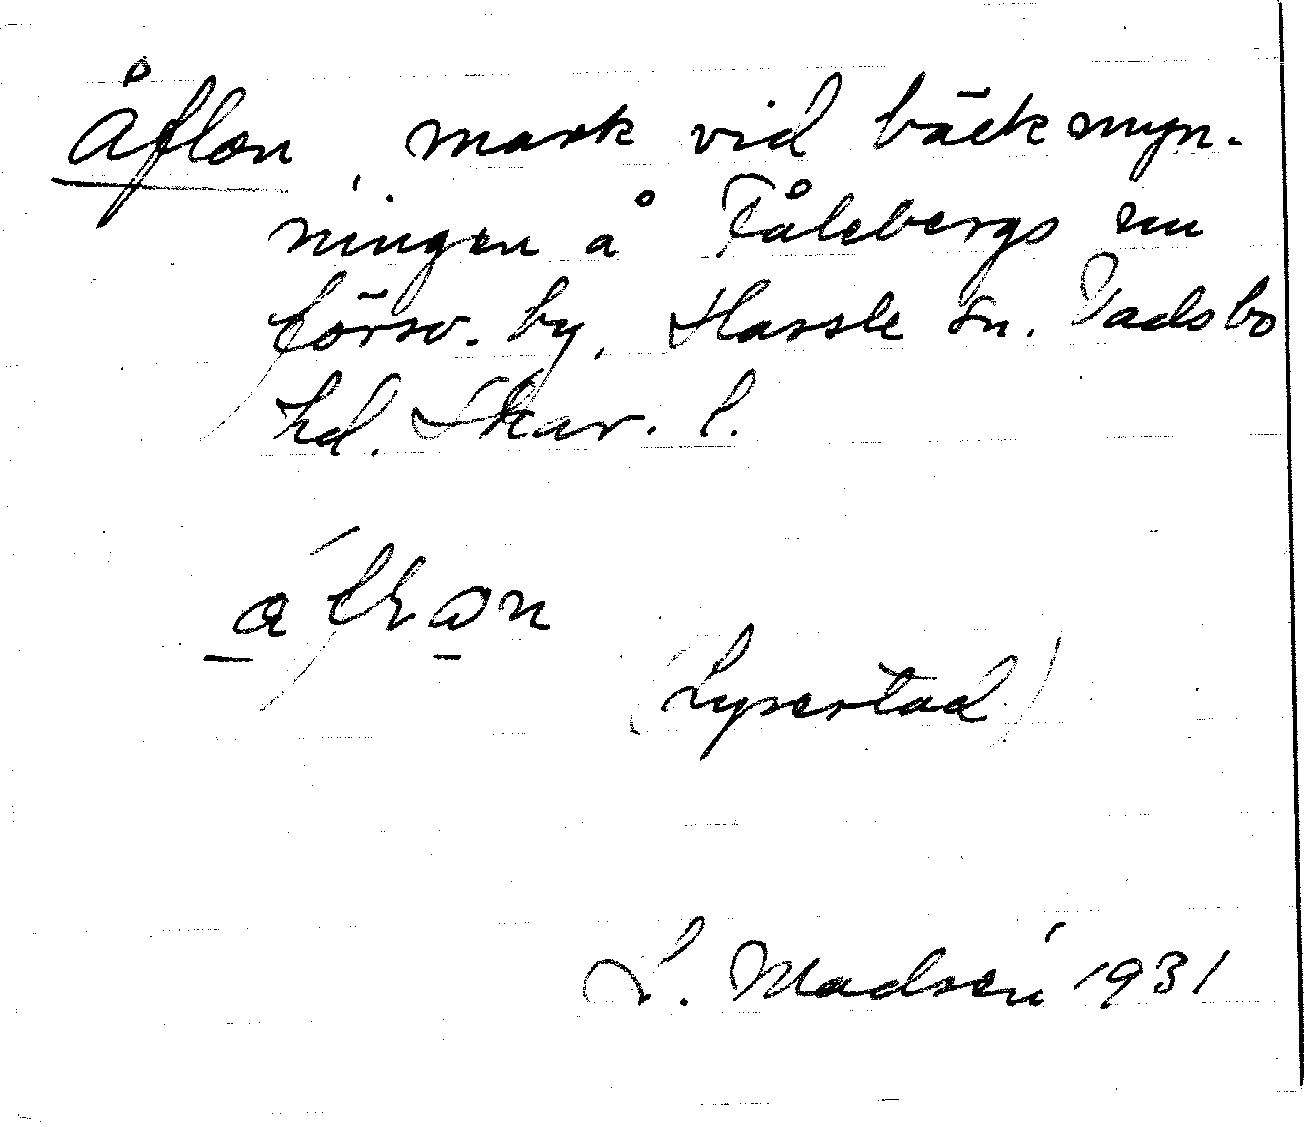 Åflon, mark vid bäckmyn-
ningen å Fålebergs nu
försv. by. Hassle sn. Vadsbo
hd. Skar. l.
(Lyrestad)
L. Madsén 1931